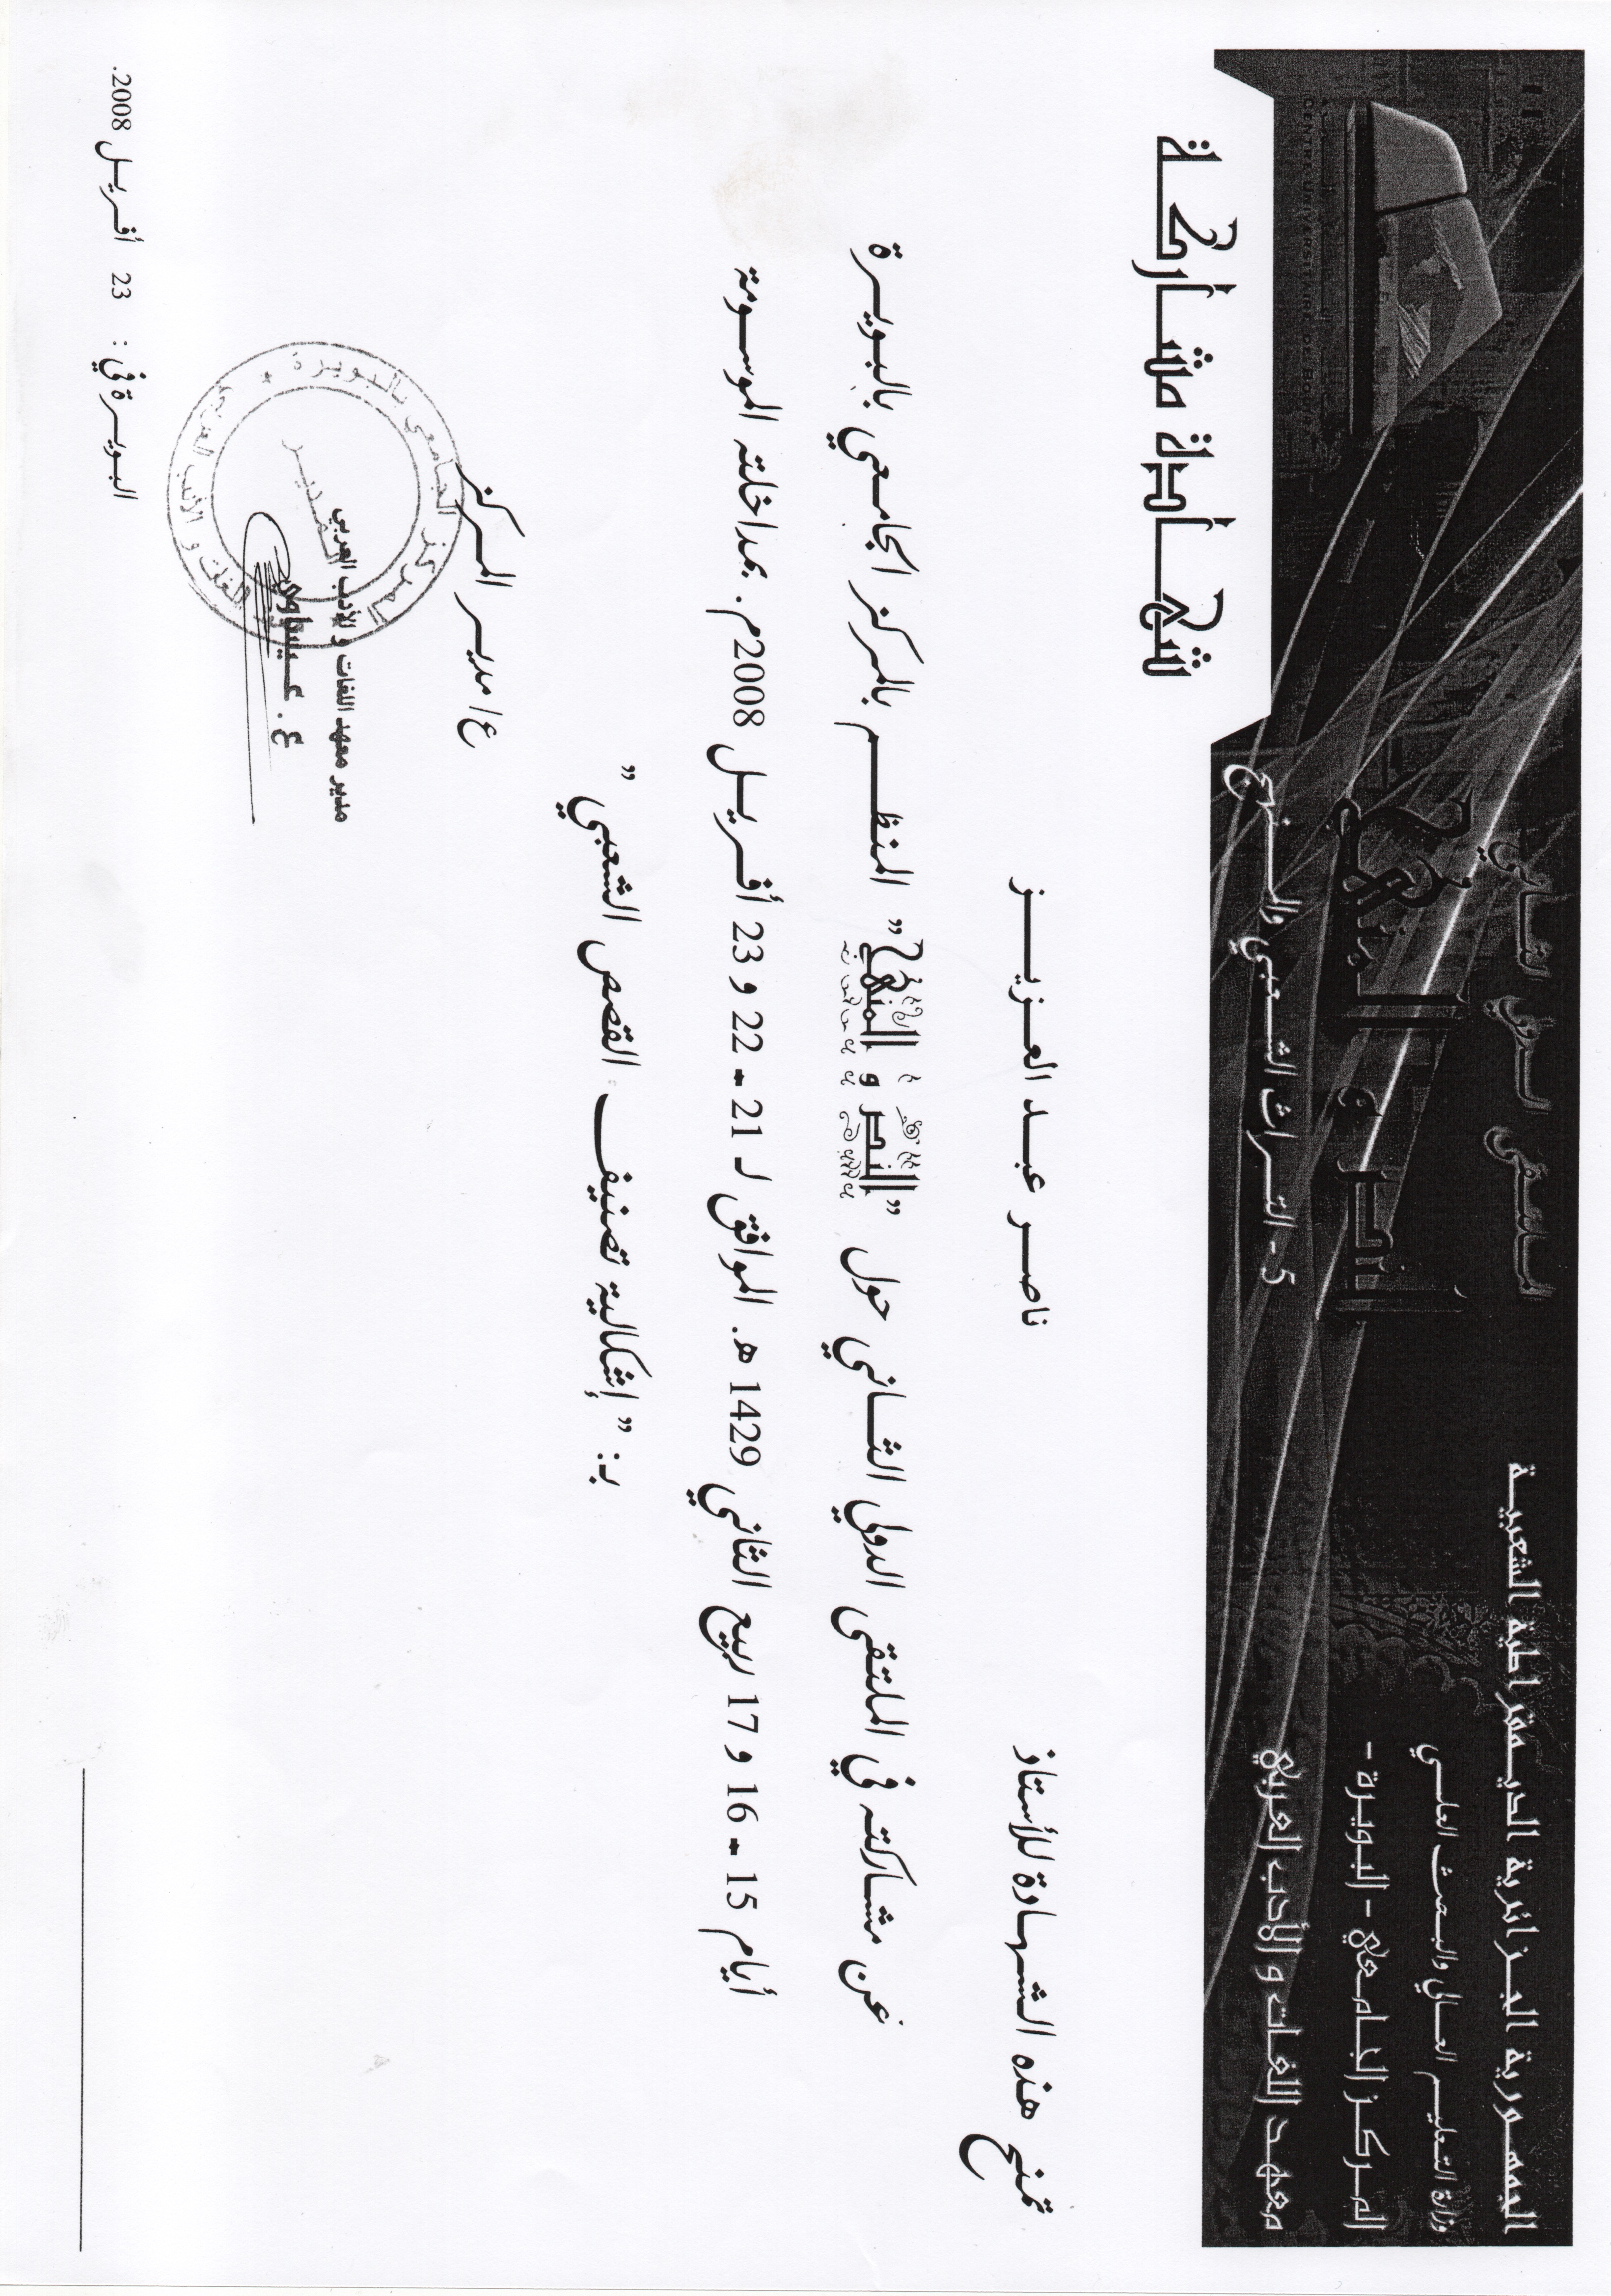 الجمهورية الجزائرية الديمقراطية الشعبية
وزارة التعليم العالي والبحث العلمي
المركز الجامعي - البويرة -
معهد اللغات و الأدب العربي
الملتقى الدولي الثاني
النص و المنهج
5 - التراث الشعبي والمنهج
CENTRE UNIVERSITAIRE DE BOUIRA
شهادة مشاركة
تمنح هذه الشهادة للأستاذ ناصر عبد العزيز
عن مشاركته في الملتقى الدولي الثاني حول "النص و المنهج" المنظم بالمركز الجامعي بالبويرة
أيام 15 - 16 و 17 ربيع الثاني 1429 هـ. الموافق لـ 21 - 22 و 23 أفريل 2008م. بمداخلته الموسومة
بـ: " إشكالية تصنيف القصص الشعبي "
ع/ مدير المركز
مدير معهد اللغات و الأدب العربي
ع. عيساوي
المركز الجامعي بالبويرة * معهد اللغات و الأدب العربي
المدير
البويرة في : 23 أفريل 2008.